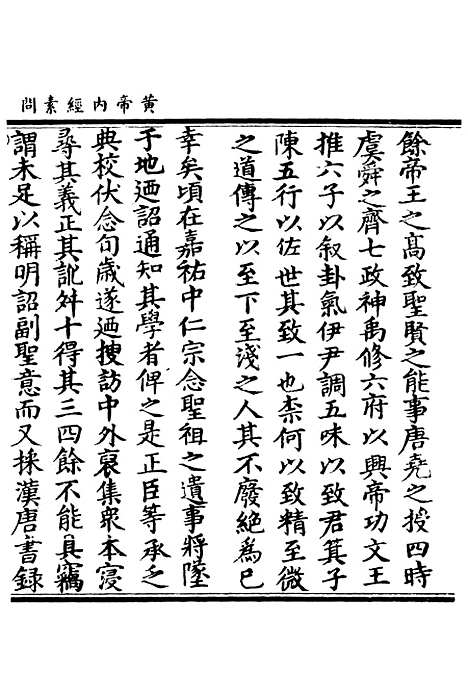 黃帝內經素問
餘帝王之高致聖賢之能事唐堯之授四時
虞舜之齊七政神禹修六府以興帝功文王
推六子以叙卦氣伊尹調五味以致君箕子
陳五行以佐世其致一也柰何以致精至微
之道傳之以至下至淺之人其不廢絕為已
幸矣頃在嘉祐中仁宗念聖祖之遺事將墜
于地廼詔通知其學者俾之是正臣等承乏
典校伏念旬歲遂廼搜訪中外裒集衆本寖
尋其義正其訛舛十得其三四餘不能具竊
謂未足以稱明詔副聖意而又採漢唐書録